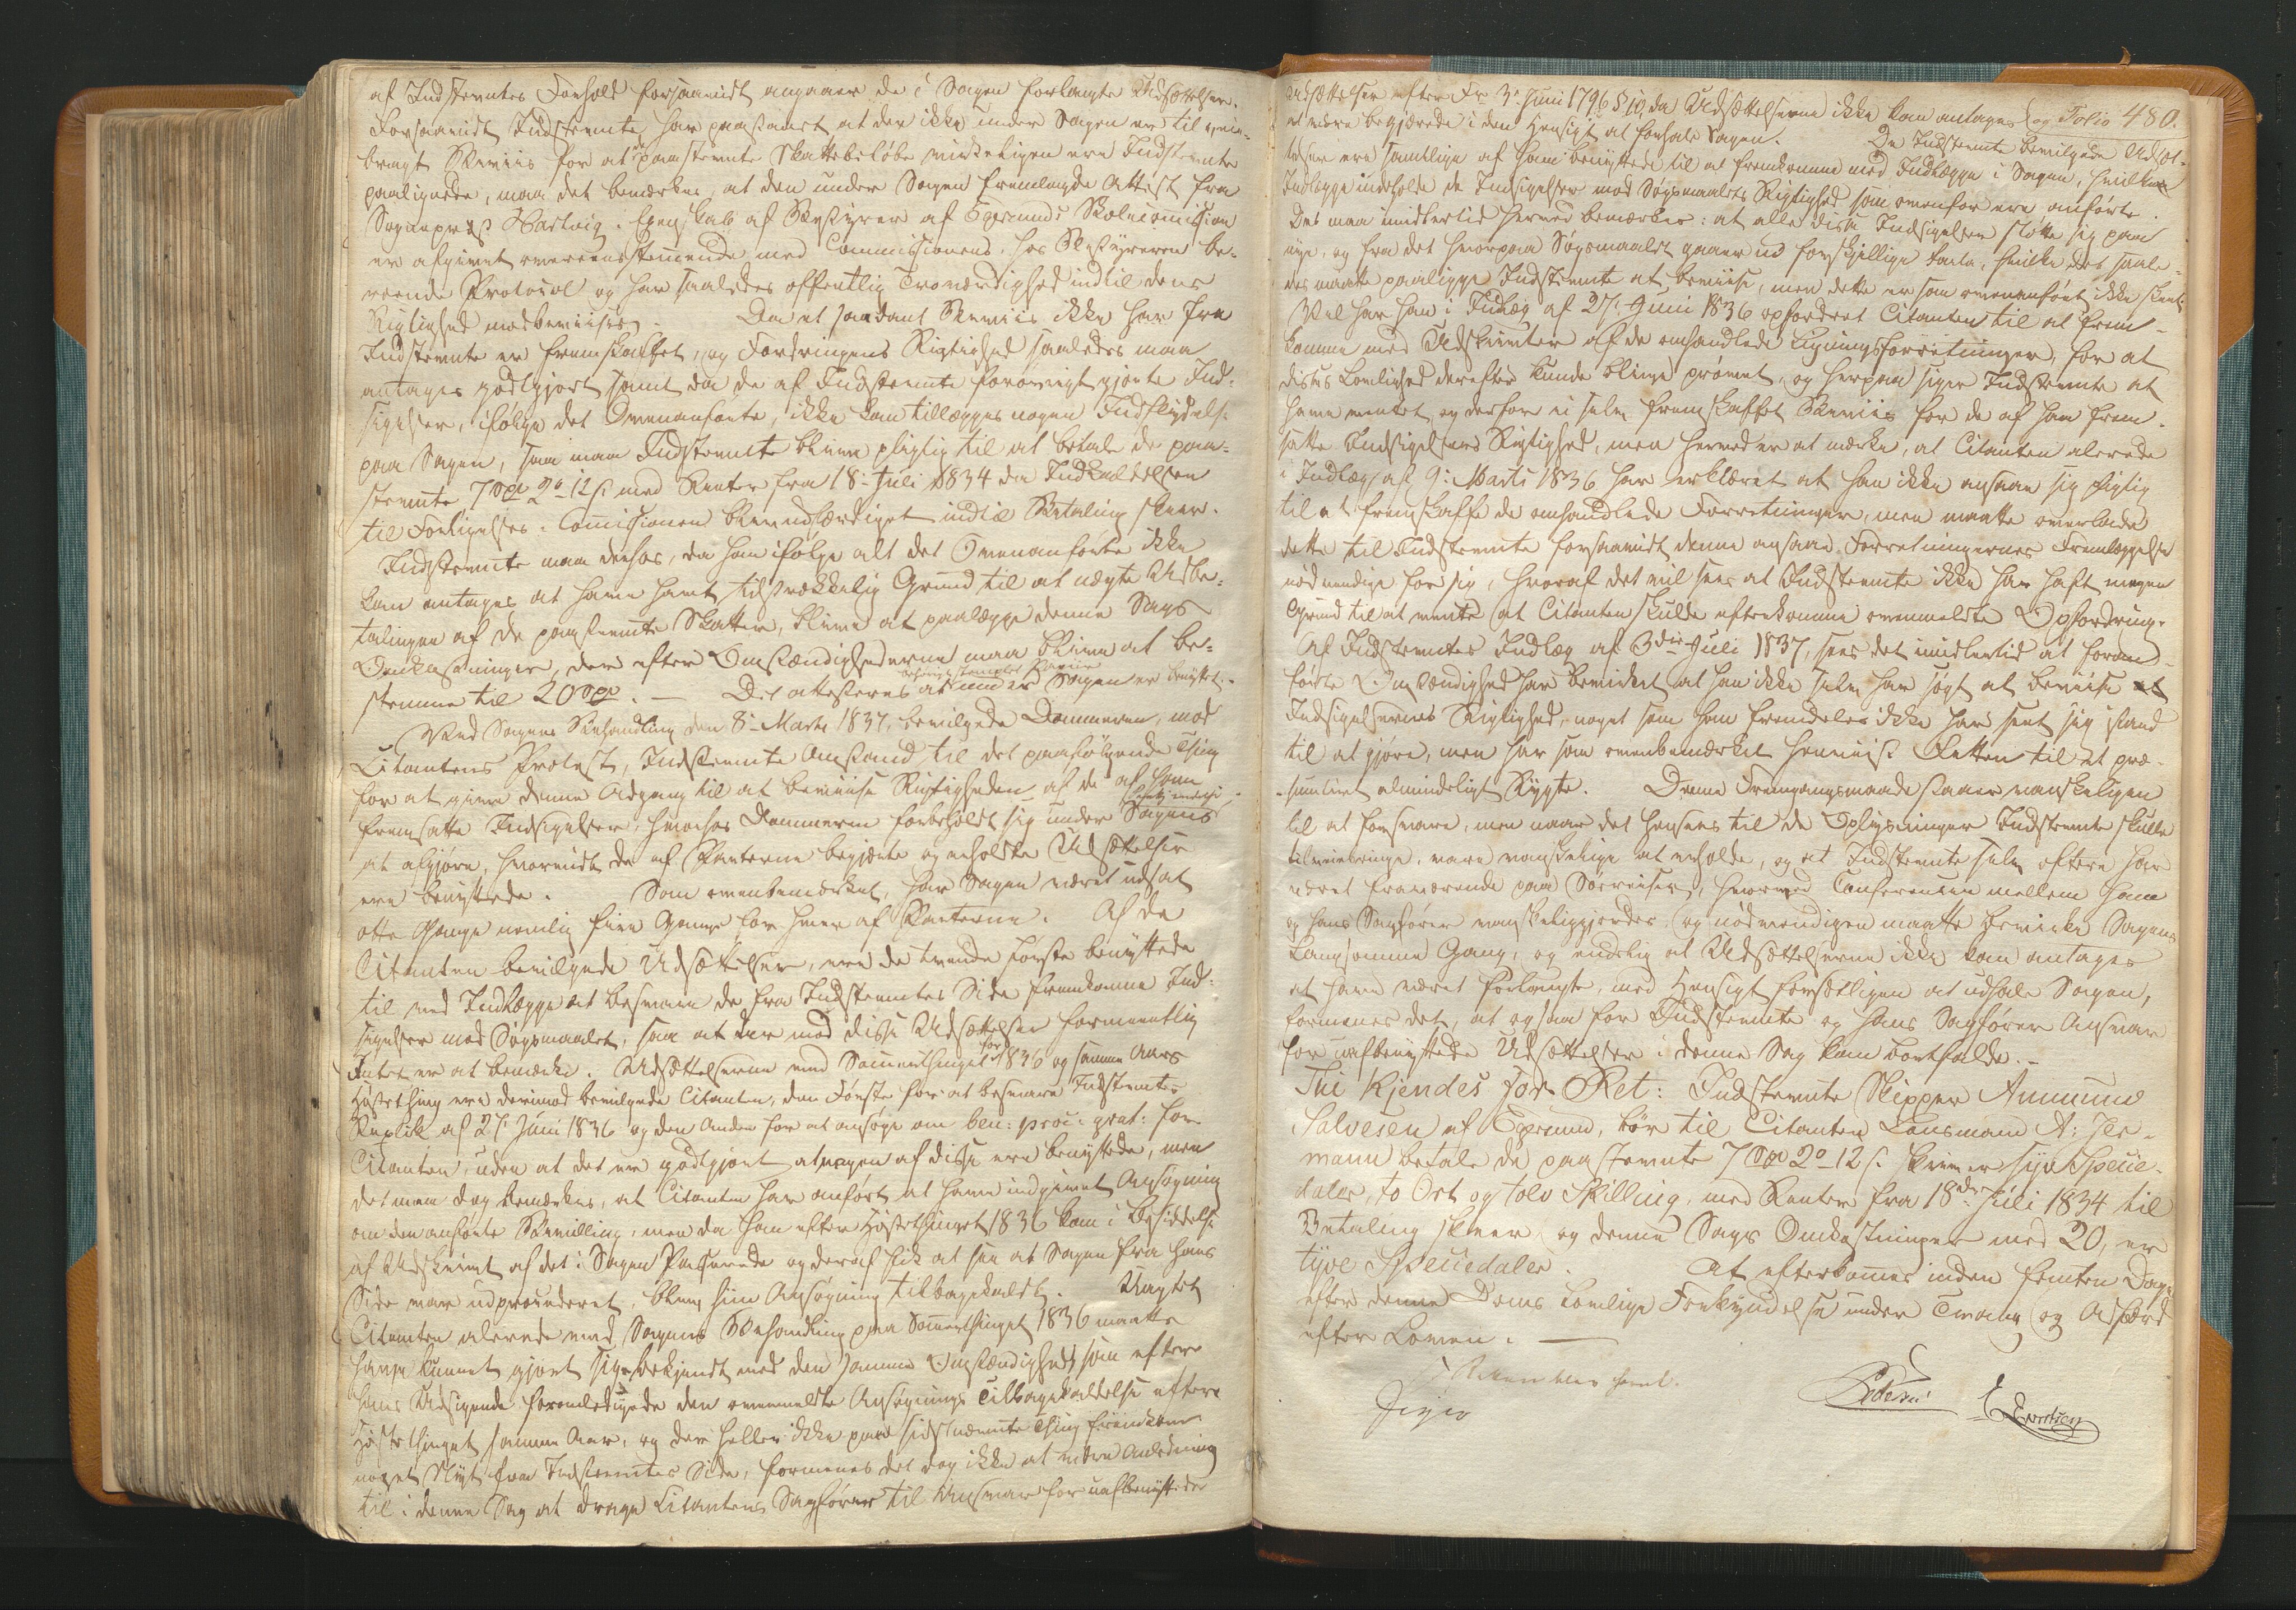 af Indstevntes Forhold forsaavidt angaaer de i Sagen forlangte Udsættelser.
Forsaavidt Indstevnte har paastaaet at der ikke under Sagen er tilveie-
bragt Beviis for at paastevnte Skattebeløbe virkeligen ere Indstevnte
paalignede, maa det bemærkes, at den under Sagen fremlagde Attest fra
Sognepræst Hartvig i Egenskab af Bestyrer af Egersunds Skolecommission
er afgivet overeensstemmende med Commissionens, hos Bestyreren be-
roende Protocol og har saaledes offentlig Troværdighed indtil dens
Rigtighed modbevises. Da et saadant Beviis ikke har fra
Indstevnte er fremskaffet, og Fordringens Rigtighed saaledes maa
antages godtgjort samt da de af Indstevnte forøvrigt gjorte Ind-
sigelser, ifølge det Ovenanførte, ikke kan tillægges nogen Indflydelse
paa Sagen, saa maa Indstevnte blive pligtig til at betale de paa-
stevnte 7 Spd 2o 12 s. med Renter fra 18de Juli 1834 da Indkaldelsen
til Forligelses-Commissionen blev udfærdiget indtil Betaling skeer.
Indstevnte maa derhos, da han ifølge alt det Ovenanførte ikke
kan antages at have havt tilstrækkelig Grund til at nægte Udbe-
talingen af de paastevnte Skatter, blive at paalægge denne Sags
Omkostninger, der efter Omstændighederne maa blive at be-
stemme til 20 Spd. — Det attesteres at behørigt stemplet Papiir under Sagen er benyttet.
Ved Sagens Behandling den 8de Marts 1837, bevilgede Dommeren, mod
Citantens Protest, Indstevnte Anstand til det paafølgende Thing
for at give denne Adgang til at bevise Rigtigheden af de af ham
fremsatte Indsigelser, hvorhos Dommeren forbeholdt sig under Sagens
at afgjøre, hvorvidt de af Parterne begjærte og erholdte Udsættelser
ere benyttede. Som ovenbemærket, har Sagen været udsat
otte Gange nemlig fire Gange for hver af Parterne. Af de
Citanten bevilgede Udsættelser, ere de tvende første benyttede
til med Indlægge at besvare de fra Indstevntes Side fremkomne Ind-
sigelser mod Søgsmaalet, saa at der mod disse Udsættelser formeentlig
Intet er at bemærke. Udsættelserne ved Sommerthinget for 1836 og samme Aars
Høstething ere derimod bevilgede Citanten, den Første for at besvare Indstevntes
Replik af 27 Juni 1836 og den Anden for at ansøge om ben: proc: grat: for
Citanten, uden at det er godtgjort at nogen af disse ere benyttede, men
det maa dog bemærkes, at Citanten har anført at have indgivet Ansøgning
om den anførte Bevilling, men da han efter Høstethinget 1836 kom i Besiddelse
af Udskrivt af det i Sagen Passerede og deraf fik at see at Sagen fra hans
Side var udprocederet, blev hiin Ansøgning tilbagekaldt. Uagtet
Citanten alerede ved Sagens Behandling paa Sommerthinget 1836 maatte
have kunnet gjort sig bekjendt med den samme Omstændighed som efter
hans Udsigende foranledigede den ovenmeldte Ansøgnings Tilbagekaldelse efter
Høstethinget samme Aar, og der heller ikke paa sidstnævnte Thing fremkom
noget Nyt fra Indstevntes Side, formenes det dog ikke at være Anledning
til i denne Sag at drage Citantens Sagfører til Ansvar for uafbenyttede
Folio 480.
Udsættelser efter Fr 3de Juni 1796 § 10, da Udsættelserne ikke kan antages
at være begjærede i den Hensigt at forhale Sagen. De Indstevnte bevilgede Udsæt-
telser ere samtlige af ham benyttede til at fremkomme med Indlægge i Sagen, hvilke
Indlægge indeholde de Indsigelser mod Søgsmaalets Rigtighed som ovenfor ere anførte.
Det maa imidlertid herved bemærkes: at alle disse Indsigelser støtte sig paa
nye, og fra det hvorpaa Søgsmaalet gaaer ud forskjellige Facta, hvilke det saale-
des maatte paaligge Indstevnte at bevise, men dette er som ovenanført ikke skeet.
Vel har han i Indlæg af 27 Juni 1836 opfordret Citanten til at frem-
komme med Udskrivter af de omhandlede Ligningsforretninger, for at
disses Lovlighed derefter kunde blive prøvet, og herpaa siger Indstevnte at
have ventet og derfor ei selv fremskaffet Beviis for de af ham frem-
satte Indsigelsers Rigtighed, men herved er at mærke, at Citanten alerede
i Indlæg af 9de Marts 1836 har erklæret at han ikke ansaae sig pligtig
til at fremskaffe de omhandlede Forretninger, men maatte overlade
dette til Indstevnte forsaavidt denne ansaae Forretningernes Fremlæggelse
nødvendige for sig, hvoraf det vil sees at Indstevnte ikke har haft megen
Grund til at vente at Citanten skulde efterkomme ovenmeldte Opfordring.
Af Indstevntes Indlæg af 3die Juli 1837, sees det imidlertid at foran-
førte Omstændighed har bevirket at han ikke selv har søgt at bevise
Indsigelsernes Rigtighed, noget som han fremdeles ikke har seet sig istand
til at gjøre, men har som ovenbemærket henviist Retten til et præ-
sumeret almindeligt Rygte. Denne Fremgangsmaade staaer vanskeligen
til at forsvare, men naar det hensees til de Oplysninger Indstevnte skulle
tilveiebringe, vare vanskelige at erholde, og at Indstevnte selv oftere har
været fraværende paa Søereiser, hvorved Conferencen mellem ham
og hans Sagfører vanskeliggjordes og nødvendigen maatte bevirke Sagens
langsomme Gang, og endelig at Udsættelserne ikke kan antages
at have været forlangte, med Hensigt forsætligen at udhale Sagen,
formenes det, at ogsaa for Indstevnte og hans Sagfører Ansvar
for uafbenyttede Udsættelser i denne Sag kan bortfalde.
Thi Kjendes for Ret: Indstevnte Skipper Ammund
Salvesen af Egersund, bør til Citanten Lensmand A: Jer-
mann betale de paastevnte 7 Spd 2o 12 s. skriver syv Specie-
daler, to Ort og tolv Skilling, med Renter fra 18de Juli 1834 til
Betaling skeer, og denne Sags Omkostninger med 20, er
tyve Speciedaler. At efterkommes inden femten Dage
efter denne Doms lovlige Forkyndelse under Tvang og Adfærd
efter Loven. —